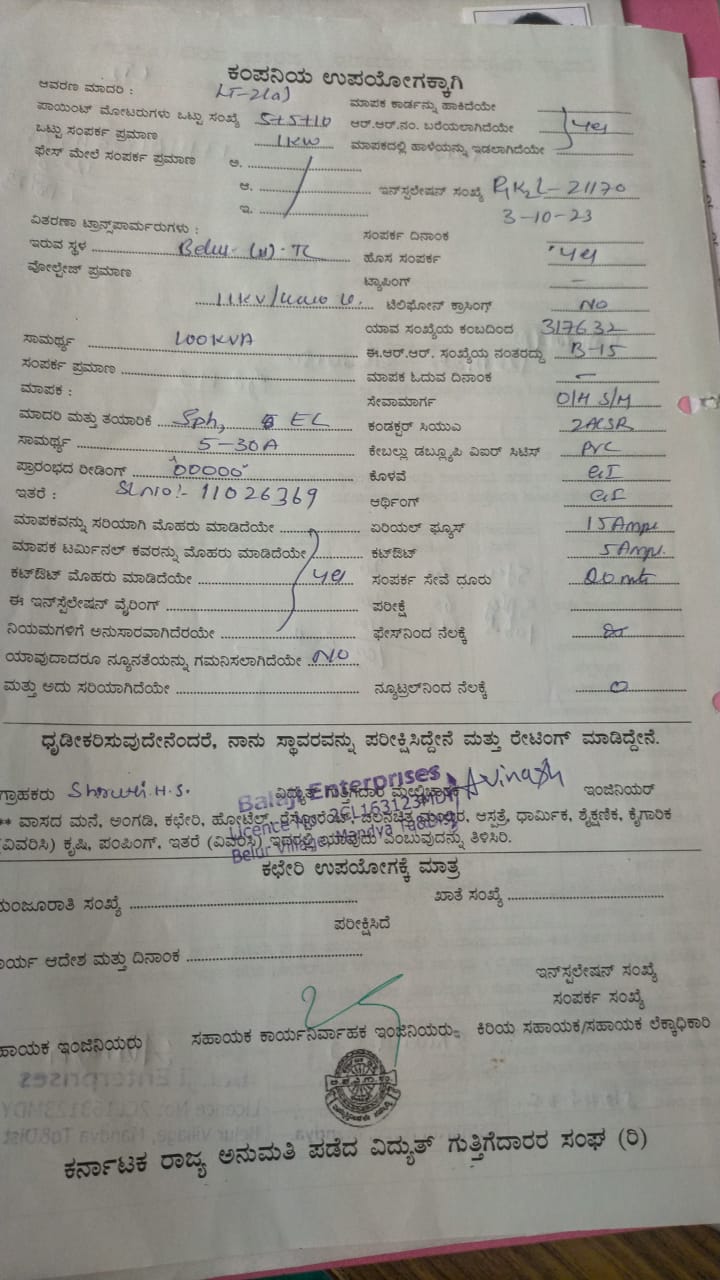 ಕಂಪನಿಯ ಉಪಯೋಗಕ್ಕಾಗಿ
ಆವರಣ ಮಾದರಿ : LT-2(a)
ಮಾಪಕ ಕಾರ್ಡನ್ನು ಹಾಕಿದೆಯೇ
ಪಾಯಿಂಟ್ ಮೋಟರುಗಳು ಒಟ್ಟು ಸಂಖ್ಯೆ 5+5+10
ಆರ್.ಆರ್.ನಂ. ಬರೆಯಲಾಗಿದೆಯೇ yes
ಒಟ್ಟು ಸಂಪರ್ಕ ಪ್ರಮಾಣ 1KW
ಮಾಪಕದಲ್ಲಿ ಹಾಳೆಯನ್ನು ಇಡಲಾಗಿದೆಯೇ
ಫೇಸ್ ಮೇಲೆ ಸಂಪರ್ಕ ಪ್ರಮಾಣ ಅ.
ಆ. ಇನ್‌ಸ್ಪಲೇಷನ್ ಸಂಖ್ಯೆ 21170
ಇ. 3-10-23
ವಿತರಣಾ ಟ್ರಾನ್ಸ್‌ಪಾರ್ಮರುಗಳು :
ಸಂಪರ್ಕ ದಿನಾಂಕ
ಇರುವ ಸ್ಥಳ Belur
ಹೊಸ ಸಂಪರ್ಕ yes
ವೋಲ್ಟೇಜ್ ಪ್ರಮಾಣ
ಟ್ಯಾಪಿಂಗ್ –
11KV/ ಟೆಲಿಫೋನ್ ಕ್ರಾಸಿಂಗ್ NO
ಯಾವ ಸಂಖ್ಯೆಯ ಕಂಬದಿಂದ 317632
ಸಾಮರ್ಥ್ಯ 100KVA
ಈ.ಆರ್.ಆರ್. ಸಂಖ್ಯೆಯ ನಂತರದ್ದು B-15
ಸಂಪರ್ಕ ಪ್ರಮಾಣ
ಮಾಪಕ ಓದುವ ದಿನಾಂಕ –
ಮಾಪಕ :
ಸೇವಾಮಾರ್ಗ O/H S/M
ಮಾದರಿ ಮತ್ತು ತಯಾರಿಕೆ EL
ಕಂಡಕ್ಟರ್ ಸಿಯುಎ 2ACSR
ಸಾಮರ್ಥ್ಯ 5-30A
ಕೇಬಲ್ಲು ಡಬ್ಲ್ಯೂಪಿ ವಿಐರ್ ಸಿಟಿಸ್ PVC
ಪ್ರಾರಂಭದ ರೀಡಿಂಗ್ 00000
ಕೊಳವೆ GI
ಇತರೆ : Sl no:- 11026369
ಆರ್ಥಿಂಗ್ GI
ಮಾಪಕವನ್ನು ಸರಿಯಾಗಿ ಮೊಹರು ಮಾಡಿದೆಯೇ
ಏರಿಯಲ್ ಫ್ಯೂಸ್ 15Amps
ಮಾಪಕ ಟರ್ಮಿನಲ್ ಕವರನ್ನು ಮೊಹರು ಮಾಡಿದೆಯೇ
ಕಟ್‌ಔಟ್ 5Amps.
ಕಟ್‌ಔಟ್ ಮೊಹರು ಮಾಡಿದೆಯೇ yes
ಸಂಪರ್ಕ ಸೇವೆ ಧೂರು
ಈ ಇನ್‌ಸ್ಪೆಲೇಷನ್ ವೈರಿಂಗ್
ಪರೀಕ್ಷೆ
ನಿಯಮಗಳಿಗೆ ಅನುಸಾರವಾಗಿದೆರಯೇ
ಫೇಸ್‌ನಿಂದ ನೆಲಕ್ಕೆ
ಯಾವುದಾದರೂ ನ್ಯೂನತೆಯನ್ನು ಗಮನಿಸಲಾಗಿದೆಯೇ NO
ಮತ್ತು ಅದು ಸರಿಯಾಗಿದೆಯೇ
ನ್ಯೂಟ್ರಲ್‌ನಿಂದ ನೆಲಕ್ಕೆ 0
ಧೃಡೀಕರಿಸುವುದೇನೆಂದರೆ, ನಾನು ಸ್ಥಾವರವನ್ನು ಪರೀಕ್ಷಿಸಿದ್ದೇನೆ ಮತ್ತು ರೇಟಿಂಗ್ ಮಾಡಿದ್ದೇನೆ.
ಗ್ರಾಹಕರು Shruthi.H.S. ವಿದ್ಯುತ್ ಗುತ್ತಿಗೆದಾರ ಮೇಲ್ವಿಚಾರಕ Avinash ಇಂಜಿನಿಯರ್
Balaji Enterprises
Belur Village, Mandya
** ವಾಸದ ಮನೆ, ಅಂಗಡಿ, ಕಛೇರಿ, ಹೋಟೆಲ್, ರೆಸ್ಟೋರೆಂಟ್, ಚಲನಚಿತ್ರ ಮಂದಿರ, ಆಸ್ಪತ್ರೆ, ಧಾರ್ಮಿಕ, ಶೈಕ್ಷಣಿಕ, ಕೈಗಾರಿಕ
(ವಿವರಿಸಿ) ಕೃಷಿ, ಪಂಪಿಂಗ್, ಇತರೆ (ವಿವರಿಸಿ) ಇದರಲ್ಲಿ ಯಾವುದು ಎಂಬುವುದನ್ನು ತಿಳಿಸಿರಿ.
ಕಛೇರಿ ಉಪಯೋಗಕ್ಕೆ ಮಾತ್ರ
ಮಂಜೂರಾತಿ ಸಂಖ್ಯೆ
ಖಾತೆ ಸಂಖ್ಯೆ
ಪರೀಕ್ಷಿಸಿದೆ
ಕಾರ್ಯ ಆದೇಶ ಮತ್ತು ದಿನಾಂಕ
ಇನ್‌ಸ್ಪಲೇಷನ್ ಸಂಖ್ಯೆ
ಸಂಪರ್ಕ ಸಂಖ್ಯೆ
ಸಹಾಯಕ ಇಂಜಿನಿಯರು ಸಹಾಯಕ ಕಾರ್ಯನಿರ್ವಾಹಕ ಇಂಜಿನಿಯರು ಕಿರಿಯ ಸಹಾಯಕ/ಸಹಾಯಕ ಲೆಕ್ಕಾಧಿಕಾರಿ
ಕರ್ನಾಟಕ ರಾಜ್ಯ ಅನುಮತಿ ಪಡೆದ ವಿದ್ಯುತ್ ಗುತ್ತಿಗೆದಾರರ ಸಂಘ (ರಿ)